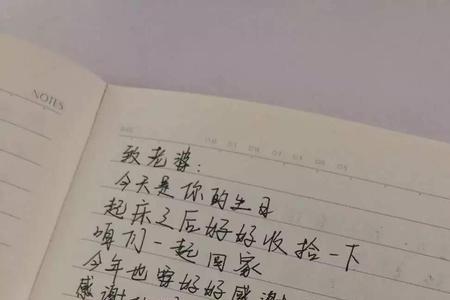 NOTES
致老婆：
今天是你的生日
起床之后好好收拾一下
咱们一起回家
今年也要好好感谢
感谢